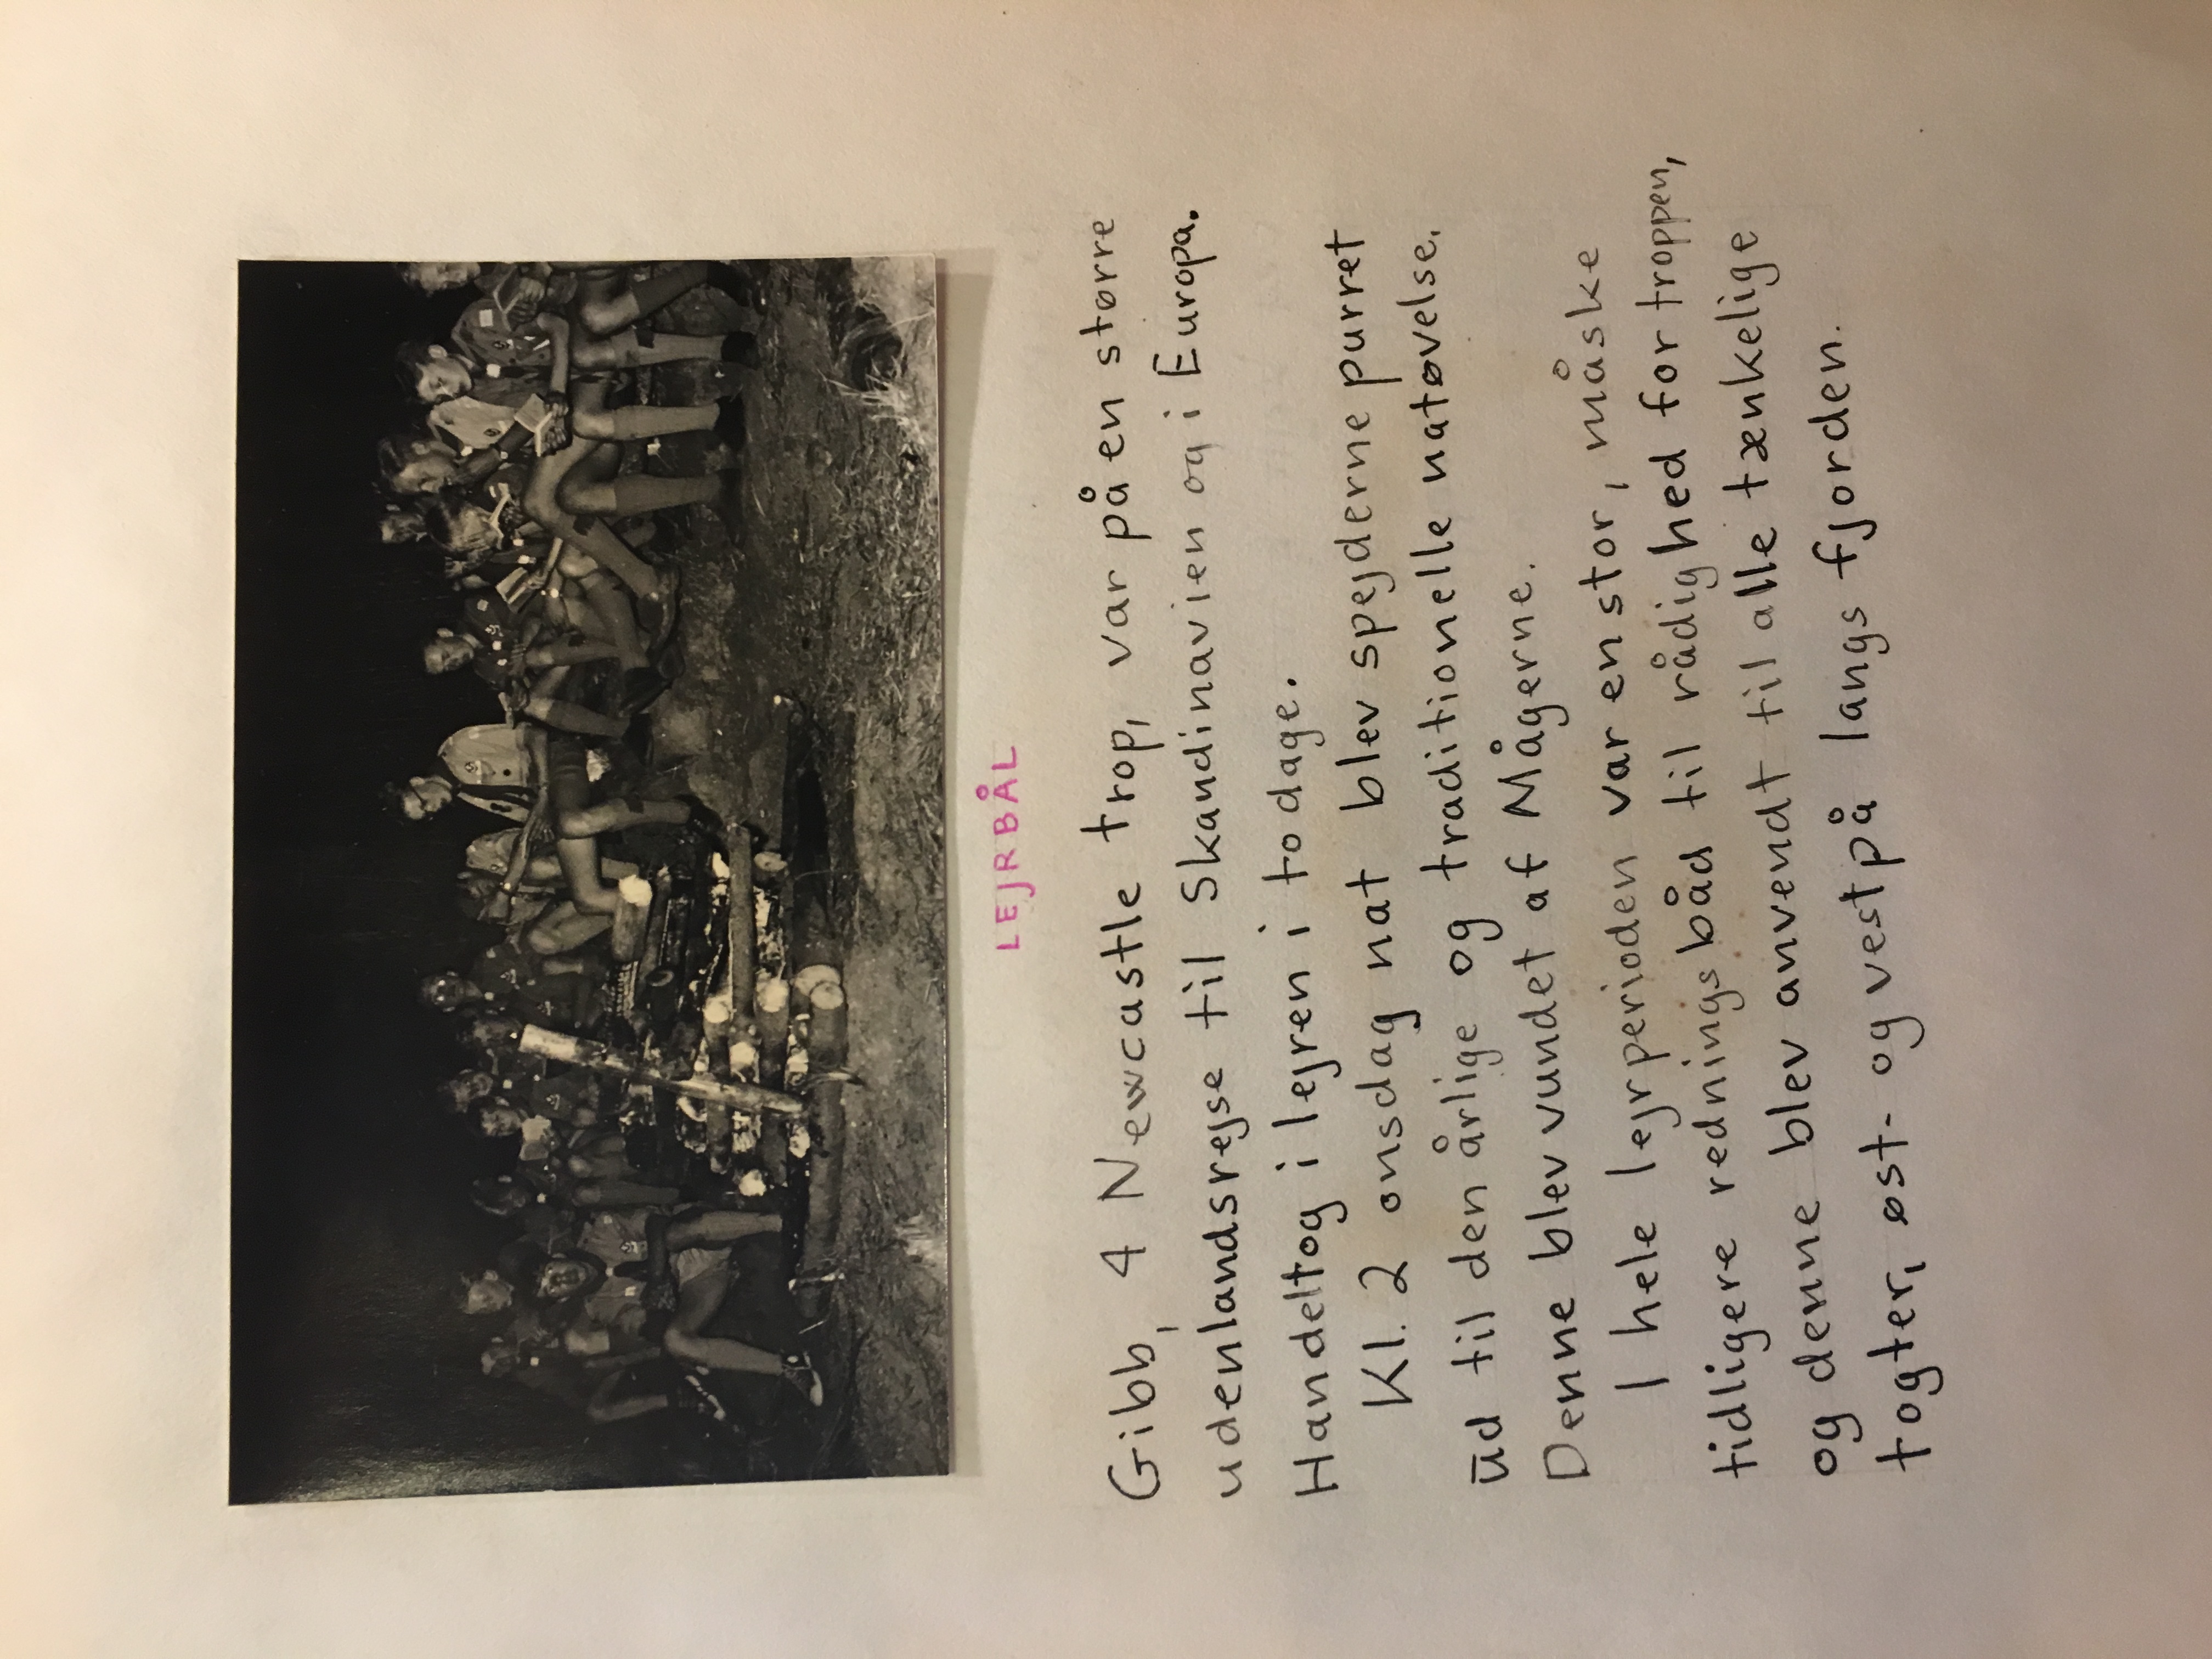 LEJRBÅL
Gibb, 4 Newcastle trop, var på en større
udenlandsrejse til Skandinavien og i Europa.
Han deltog i lejren i to dage.
Kl. 2 onsdag nat blev spejderne purret
ud til den årlige og traditionelle natøvelse.
Denne blev vundet af Mågerne.
I hele lejrperioden var en stor, måske
tidligere redningsbåd til rådighed for troppen,
og denne blev anvendt til alle tænkelige
togter, øst- og vestpå langs fjorden.